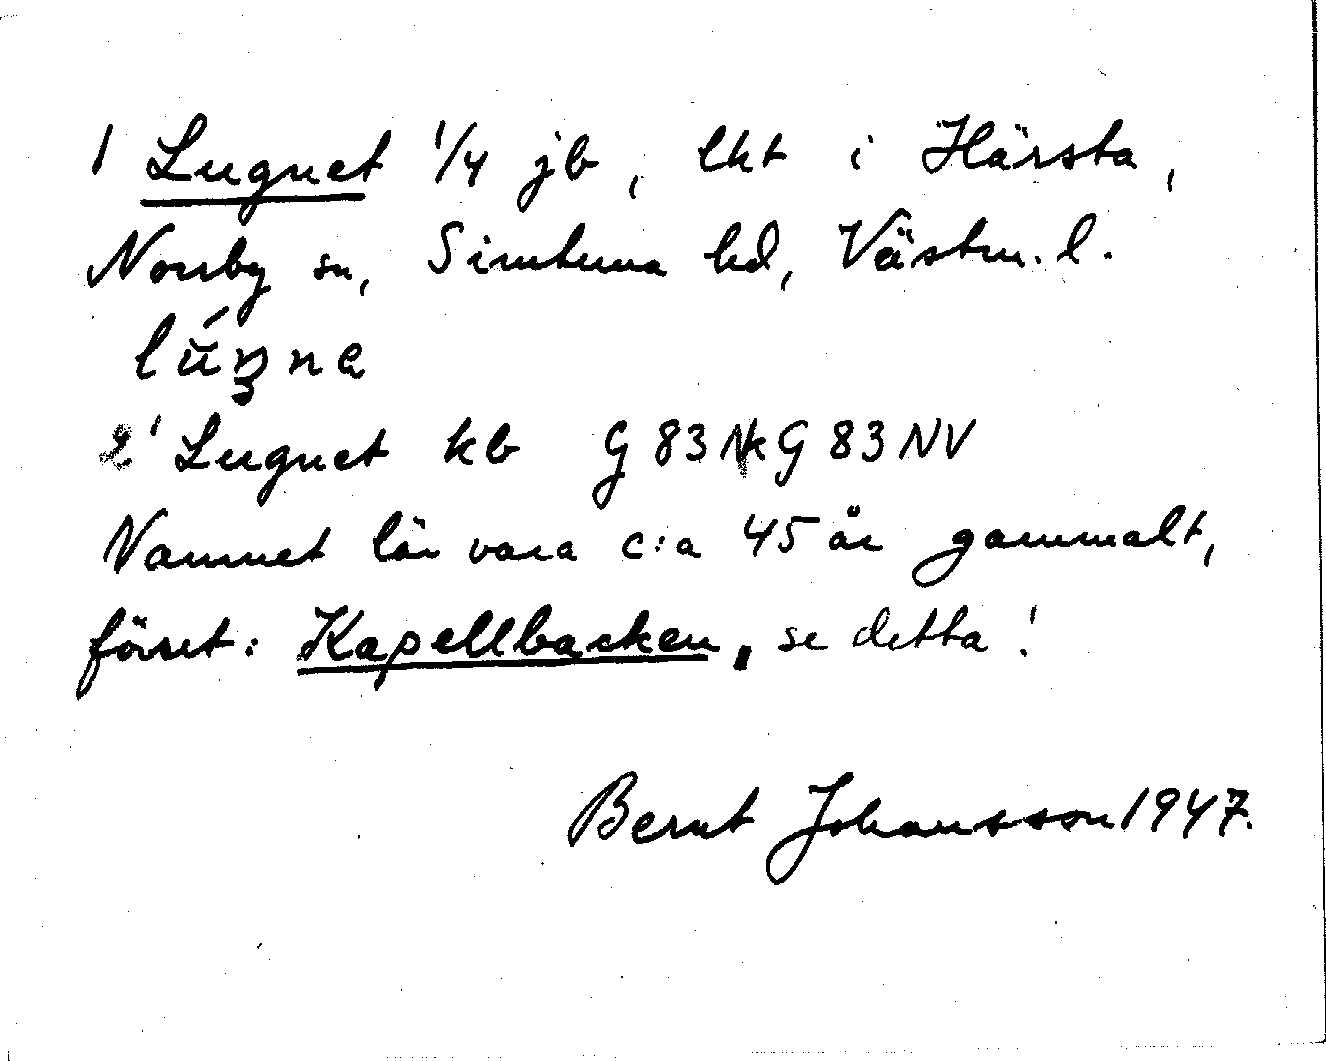 1 Lugnet 1/4 jb, lht i Härsta,
Norrby sn, Simtuna hd, Västm. l.
2' Lugnet kb G 83 G 83 NV
Namnet lär vara c:a 45 år gammalt,
förut: Kapellbacken, se detta!
Bernt Johansson 1947.